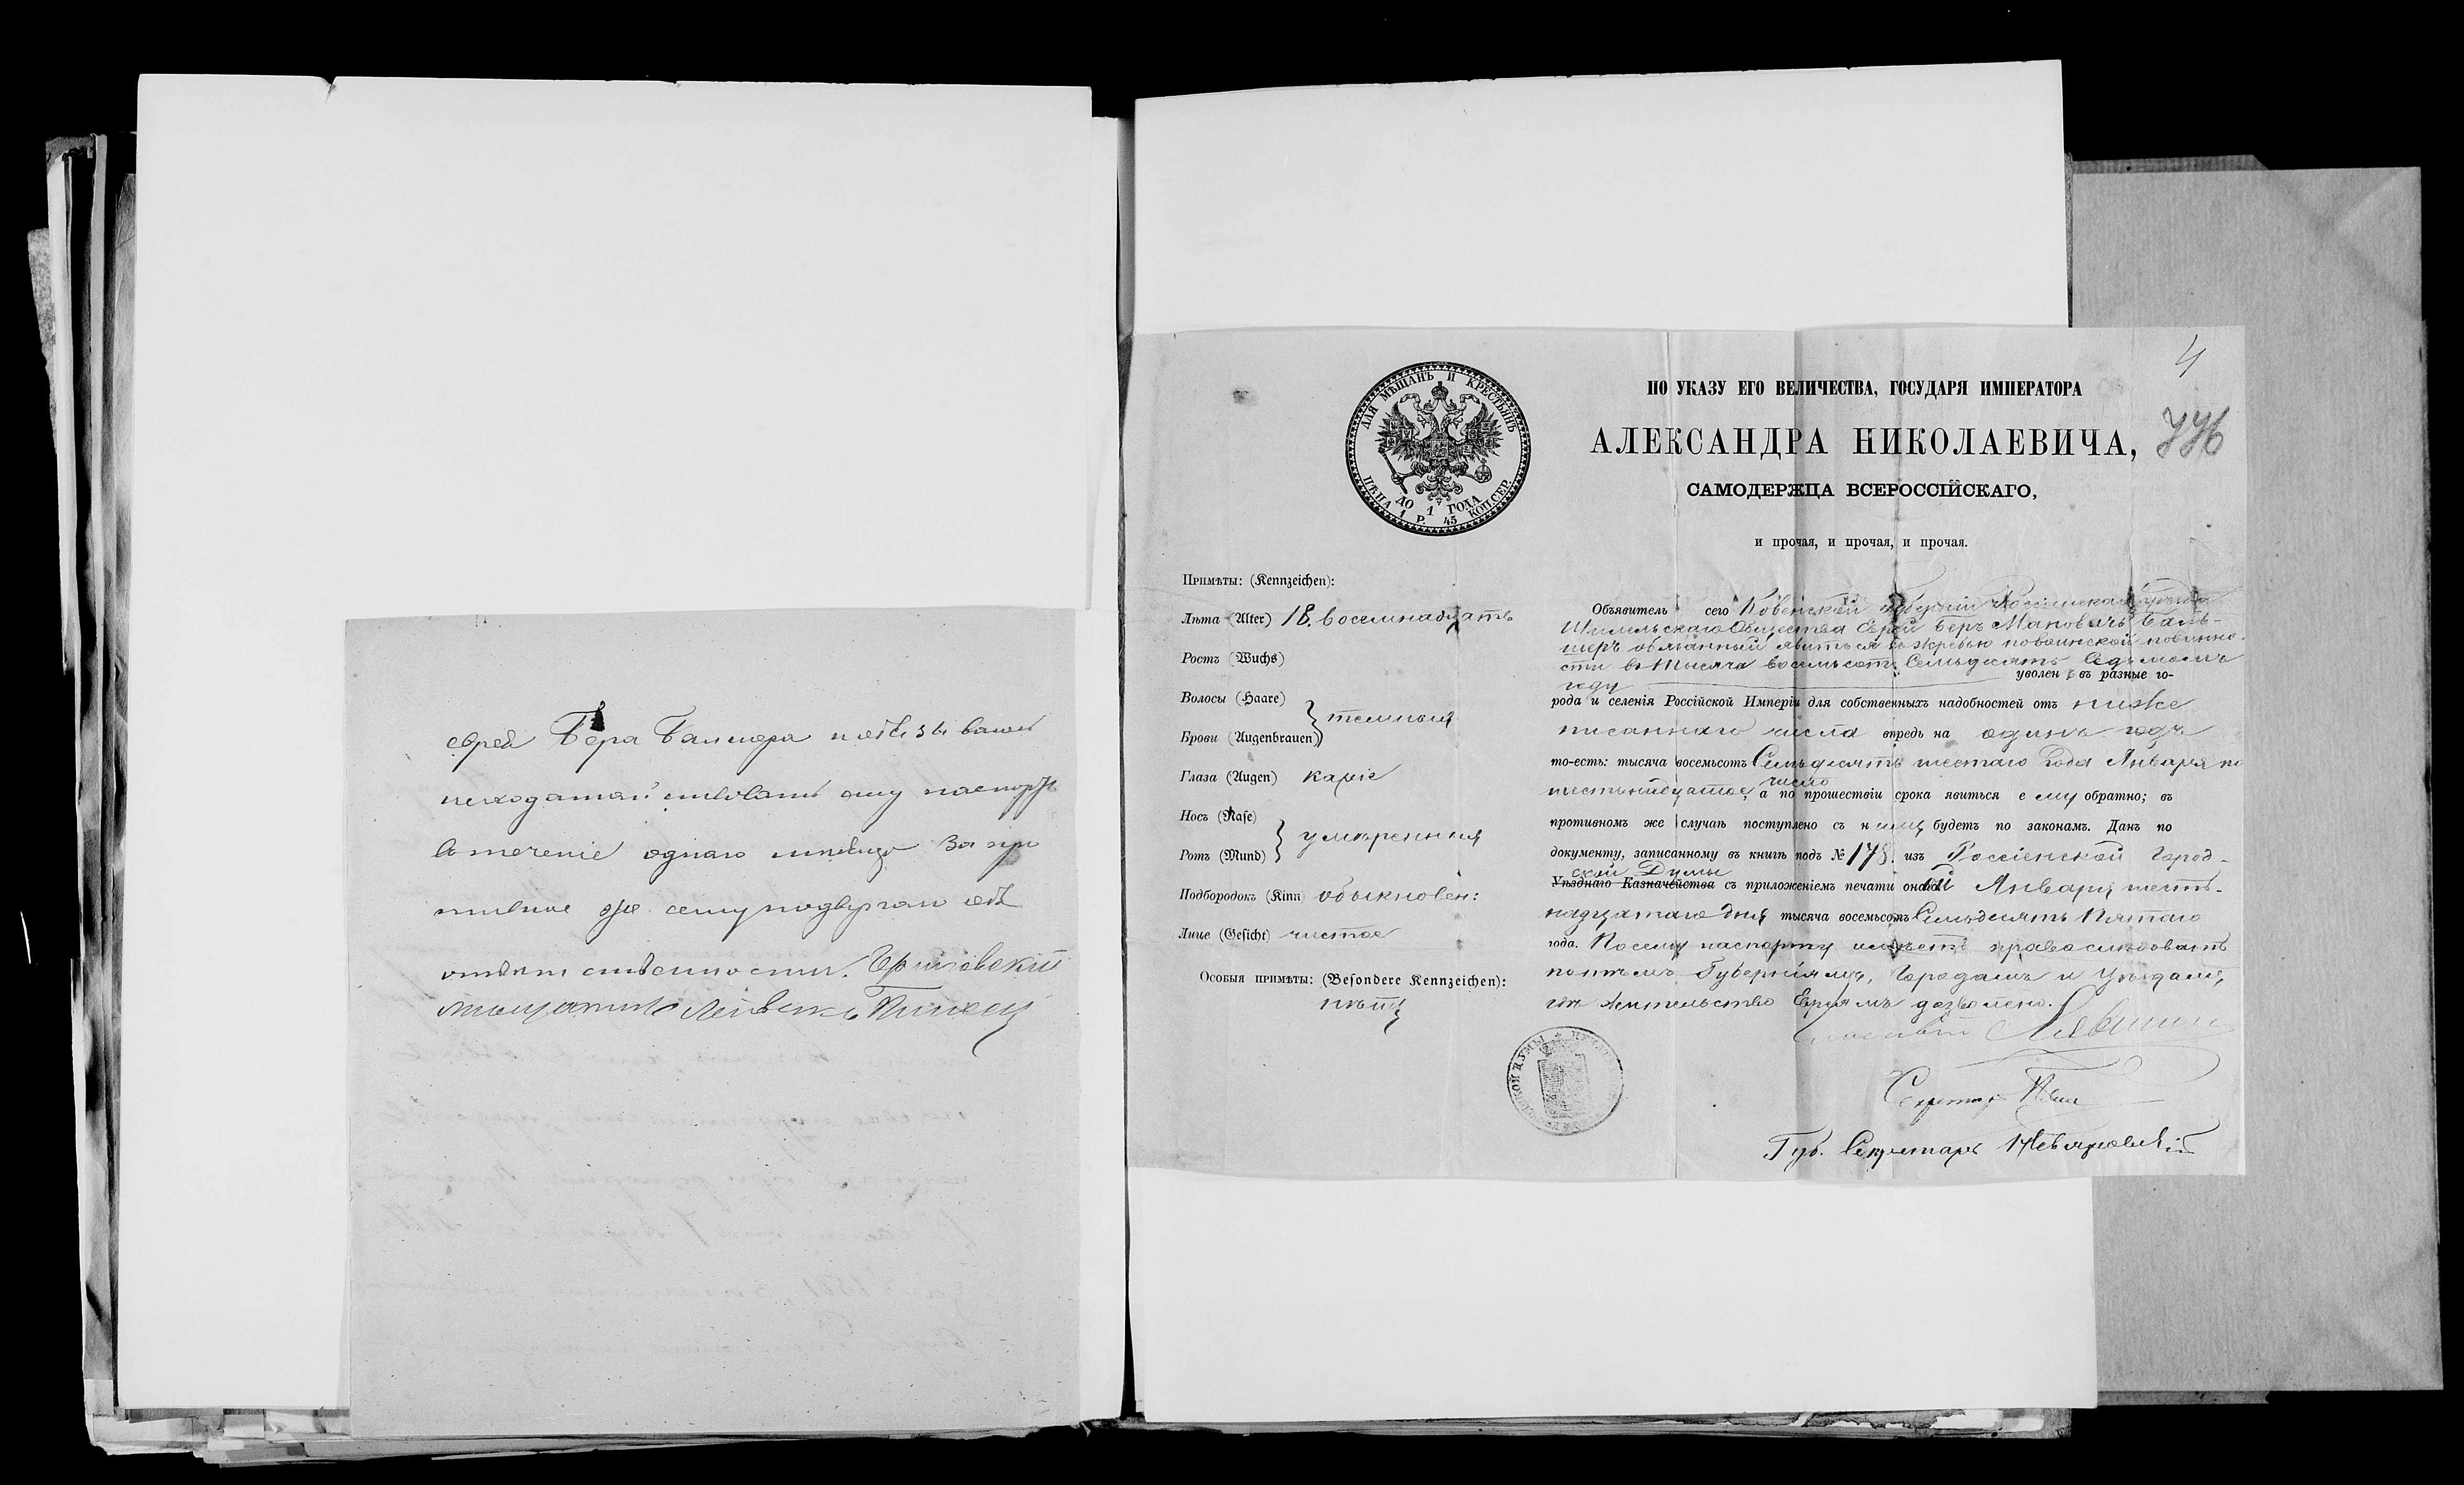 еврея Бера Балшера и обязываюсь
исходатайствовать ему паспортъ
въ теченіе однаго мѣсяца За про
тивное же сему подвергаю себя
отвѣтственности.
мѣщанинъ
4
ПО УКАЗУ ЕГО ВЕЛИЧЕСТВА, ГОСУДАРЯ ИМПЕРАТОРА
АЛЕКСАНДРА НИКОЛАЕВИЧА,
САМОДЕРЖЦА ВСЕРОССІЙСКАГО,
и прочая, и прочая, и прочая.
ДЛЯ МѢЩАНЪ И КРЕСТЬЯНЪ
ЦѢНА 1 Р. 45 КОП.СЕР.
ДО 1 ГОДА
Примѣты: (Kennzeichen):
Лѣта (Alter) 18. восемнадцать
Ростъ (Wuchs)
Волосы (Haare)
темныя
Брови (Augenbrauen)
Глаза (Augen) каріе
Носъ (Nase)
умѣренныя
Ротъ (Mund)
Подбородокъ (Kinn) обыкновен:
Лице (Gesicht) чистое
Особыя примѣты: (Besondere Kennzeichen):
нѣтъ
Объявитель сего Ковенской Губерніи Россіенскаго уѣзда
Общества Еврей Беръ Мановичъ Баль-
шеръ обязанный явиться къ жеребью по воинской повинно-
сти въ тысяча восемьсотъ Семьдесятъ Седьмомъ
году уволенъ въ разные го-
рода и селенія Россійской Имперіи для собственныхъ надобностей отъ ниже
писаннаго числа впредь на одинъ годъ
то-есть: тысяча восемьсотъ Семьдесятъ шестаго Года Января по
шестьнадцатое число, а по прошествіи срока явиться ему обратно; въ
противномъ же случаѣ поступлено съ нимъ будетъ по законамъ. Данъ по
документу, записанному въ книгѣ подъ № 178. изъ Россіенской Город-
ской Думы
Уѣзднаго Казначейства съ приложеніемъ печати оной Января шесть-
надцатаго дня тысяча восемьсотъ Семьдесятъ Пятаго
года. По сему паспорту имѣетъ право слѣдовать
по тѣмъ Губерніямъ, Городамъ и Уѣздамъ,
гдѣ жительство Евреямъ дозволено.
Гласный
Секретарь
Губ. Секретарь